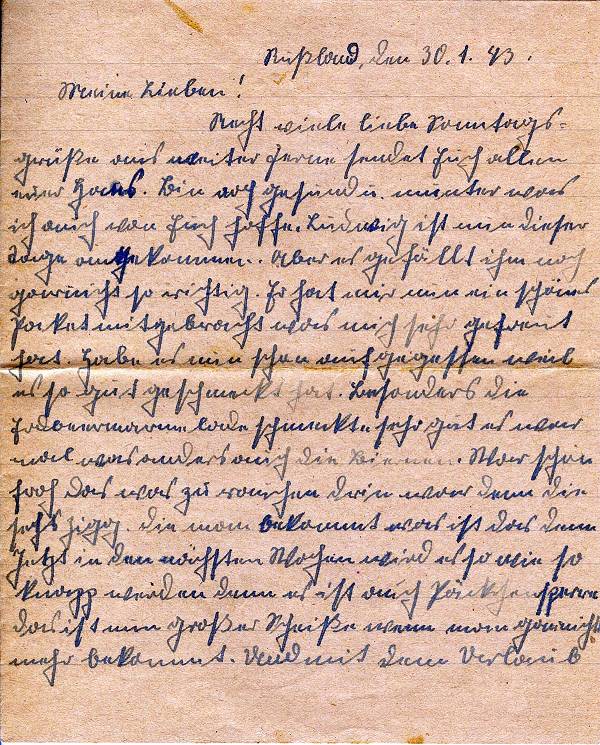 Rußland, den 30.1.43.
Meine Lieben!
Recht viele liebe Sonntags-
grüße aus weiter Ferne sendet Euch allen
euer Hans. Bin noch gesund u. munter was
ich auch von Euch hoffe. Ludwig ist nun dieser
Tage angekommen. Aber es gefällt ihm noch
garnicht so richtig. Er hat mir nun ein schönes
Paket mitgebracht was mich sehr gefreut
hat. Habe es nun schon aufgegessen weil
es so gut geschmeckt hat. Besonders die
Erdbeermarmelade schmeckte sehr gut es war
mal was anders auch die Birnen. War schon
froh das was zu rauchen drin war denn die
sechs Zigg. die man bekommt was ist das denn
Jetzt in den nächsten Wochen wird es so wie so
knapp werden denn es ist auch Päckchensperre
das ist nun großer Scheiße wenn man garnichts
mehr bekommt. Und mit dem Urlaub